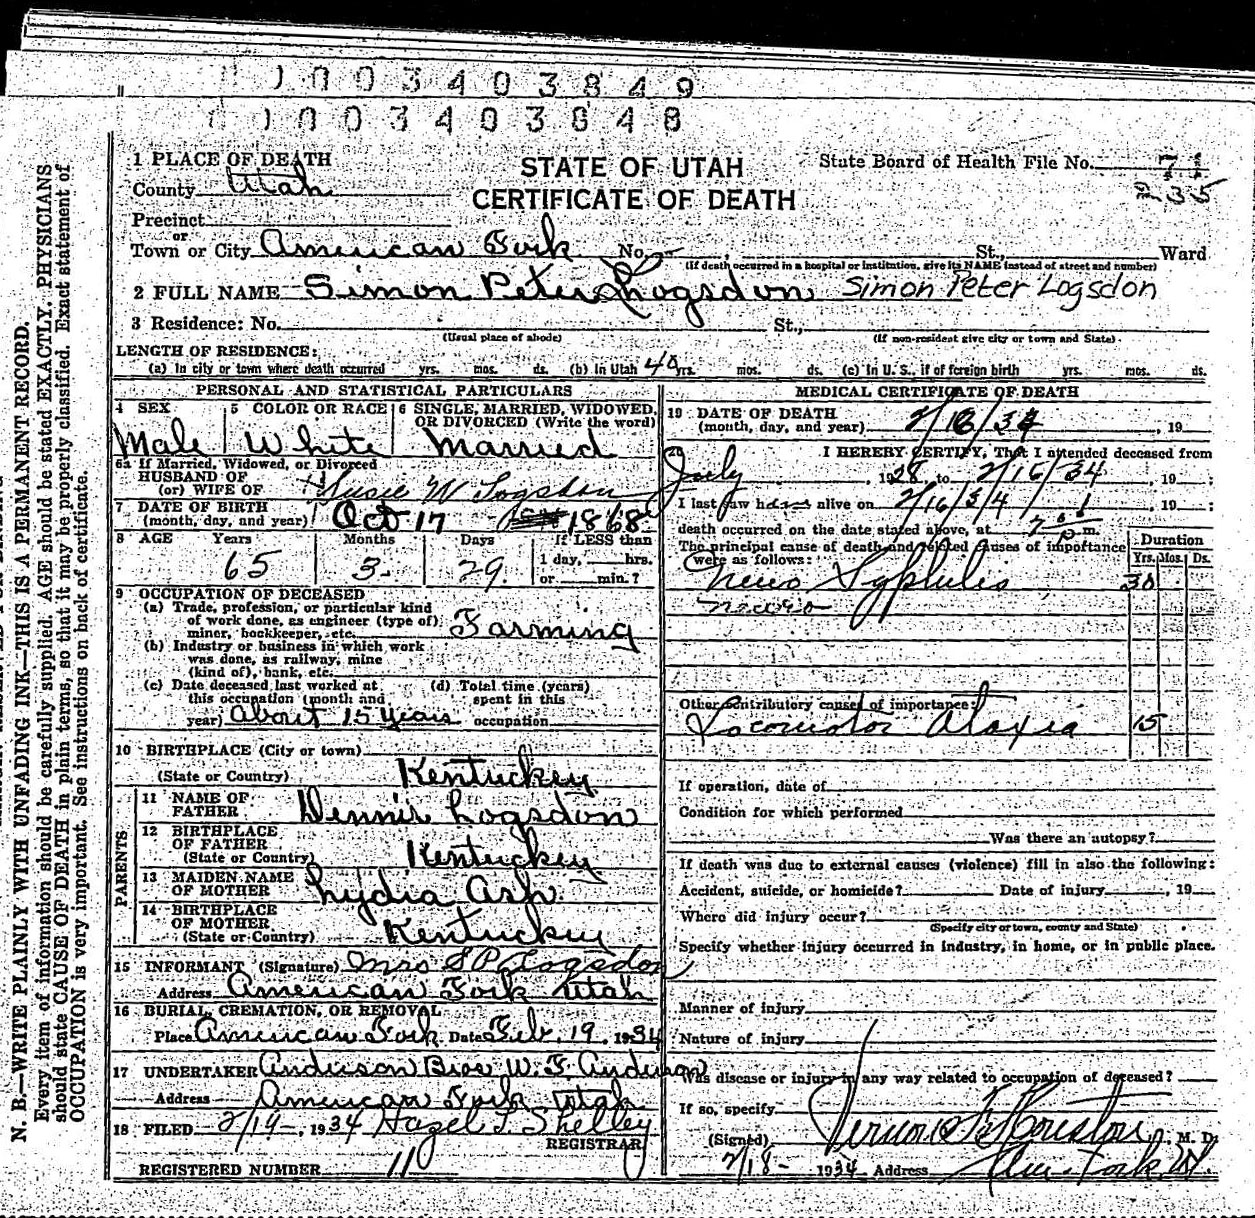 0003403849
0003403848
1 PLACE OF DEATH
STATE OF UTAH
CERTIFICATE OF DEATH
State Board of Health File No.
235
County Utah
Precinct
or
Town or City American Fork No. St., Ward
(If death occurred in a hospital or institution, give its NAME instead of street and number)
2 FULL NAME Simon Peter Logsdon Simon Peter Logsdon
3 Residence: No. St.,
(Usual place of abode) (If non-resident give city or town and State)
LENGTH OF RESIDENCE:
(a) In city or town where death occurred yrs. mos. ds. (b) In Utah 40 yrs. mos. ds. (c) In U. S., if of foreign birth yrs. mos. ds.
PERSONAL AND STATISTICAL PARTICULARS
4 SEX 5 COLOR OR RACE 6 SINGLE, MARRIED, WIDOWED, OR DIVORCED (Write the word)
Male White Married
6a If Married, Widowed, or Divorced
HUSBAND OF
(or) WIFE OF Susie W Logsdon
7 DATE OF BIRTH
(month, day, and year) Oct 17 1868
8 AGE Years Months Days If LESS than
65 3 29 1 day, hrs.
or min.?
9 OCCUPATION OF DECEASED
(a) Trade, profession, or particular kind
of work done, as engineer (type of)
miner, bookkeeper, etc. Farming
(b) Industry or business in which work
was done, as railway, mine
(kind of), bank, etc.
(c) Date deceased last worked at (d) Total time (years)
this occupation (month and spent in this
year) About 15 years occupation
10 BIRTHPLACE (City or town)
(State or Country) Kentucky
PARENTS
11 NAME OF
FATHER Dennis Logsdon
12 BIRTHPLACE
OF FATHER
(State or Country) Kentucky
13 MAIDEN NAME
OF MOTHER Lydia Ash
14 BIRTHPLACE
OF MOTHER
(State or Country) Kentucky
15 INFORMANT (Signature) Mrs S P Logsdon
Address American Fork Utah
16 BURIAL, CREMATION, OR REMOVAL
Place American Fork Date Feb. 19 1934
17 UNDERTAKER Anderson Bros W. F. Anderson
Address American Fork Utah
18 FILED 2/19-, 1934 Hazel L Shelley
REGISTRAR
REGISTERED NUMBER 11
MEDICAL CERTIFICATE OF DEATH
19 DATE OF DEATH
(month, day, and year) 2/16/34, 19
20 I HEREBY CERTIFY, That I attended deceased from
July, 1928 to 2/16/34, 19 :
I last saw h alive on 2/16/34, 19 :
death occurred on the date stated above, at 7 p m.
The principal cause of death and related causes of importance Duration
were as follows: Yrs. Mos. Ds.
Neuro Syphilis 30
neuro
Other contributory causes of importance:
Locomotor Ataxia 15
If operation, date of
Condition for which performed
Was there an autopsy?
If death was due to external causes (violence) fill in also the following:
Accident, suicide, or homicide? Date of injury , 19
Where did injury occur?
(Specify city or town, county and State)
Specify whether injury occurred in industry, in home, or in public place.
Manner of injury
Nature of injury
Was disease or injury in any way related to occupation of deceased?
If so, specify
(Signed) Vernon Houston, M. D.
2/18- 1934 Address Am. Fork Ut.
N. B.—WRITE PLAINLY WITH UNFADING INK—THIS IS A PERMANENT RECORD.
Every item of information should be carefully supplied. AGE should be stated EXACTLY. PHYSICIANS
should state CAUSE OF DEATH in plain terms, so that it may be properly classified. Exact statement of
OCCUPATION is very important. See instructions on back of certificate.